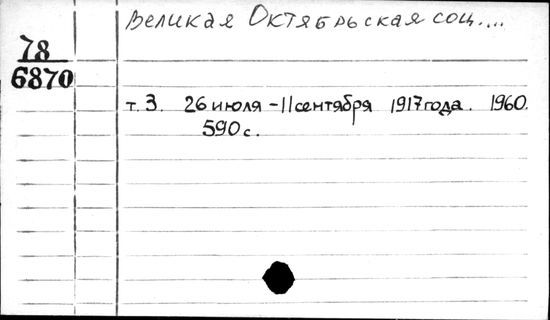 Великая Октябрьская соц....
78
6870
т. 3. 26 июля - 11 сентября 1917 года. 1960.
590 с.